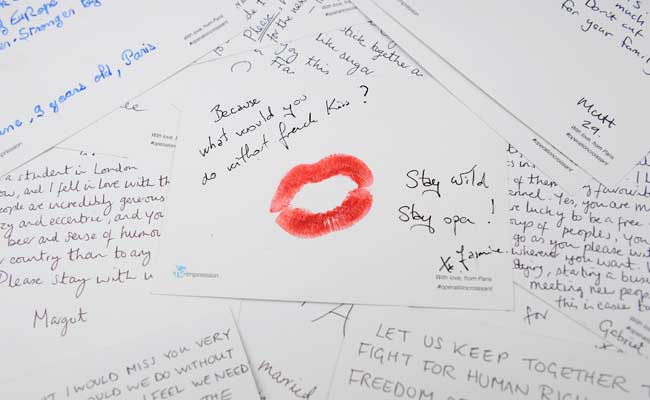 EUROPE
Stronger
9 years old, Paris
With love, from Paris
#operationcroissant
Please
for the
joy this
stick together
like sugar
Don't cut
for your family
Matt
29.
With love, from Paris
#operationcroissant
Because
what would you
do without french Kiss ?
Stay wild
Stay open !
Jasmine
Xx
rimpression
With love, from Paris
#operationcroissant
a student in London
and I fell in love with
people are incredibly generous
and eccentric, and you
beer and sense of humou
country than to any
Please stay with u
Margot
of them
Yes, you are
lucky to be a free
of peoples, you
go as you please wit
wherever you want.
starting a busi
meeting new people
this is easier
for
Gabriel
I WOULD MISS YOU VERY
WOULD WE DO WITHOUT
I FEEL WE NEED
THE
married
LET US KEEP TOGETHER T
FIGHT FOR HUMAN RIGH
FREEDOM